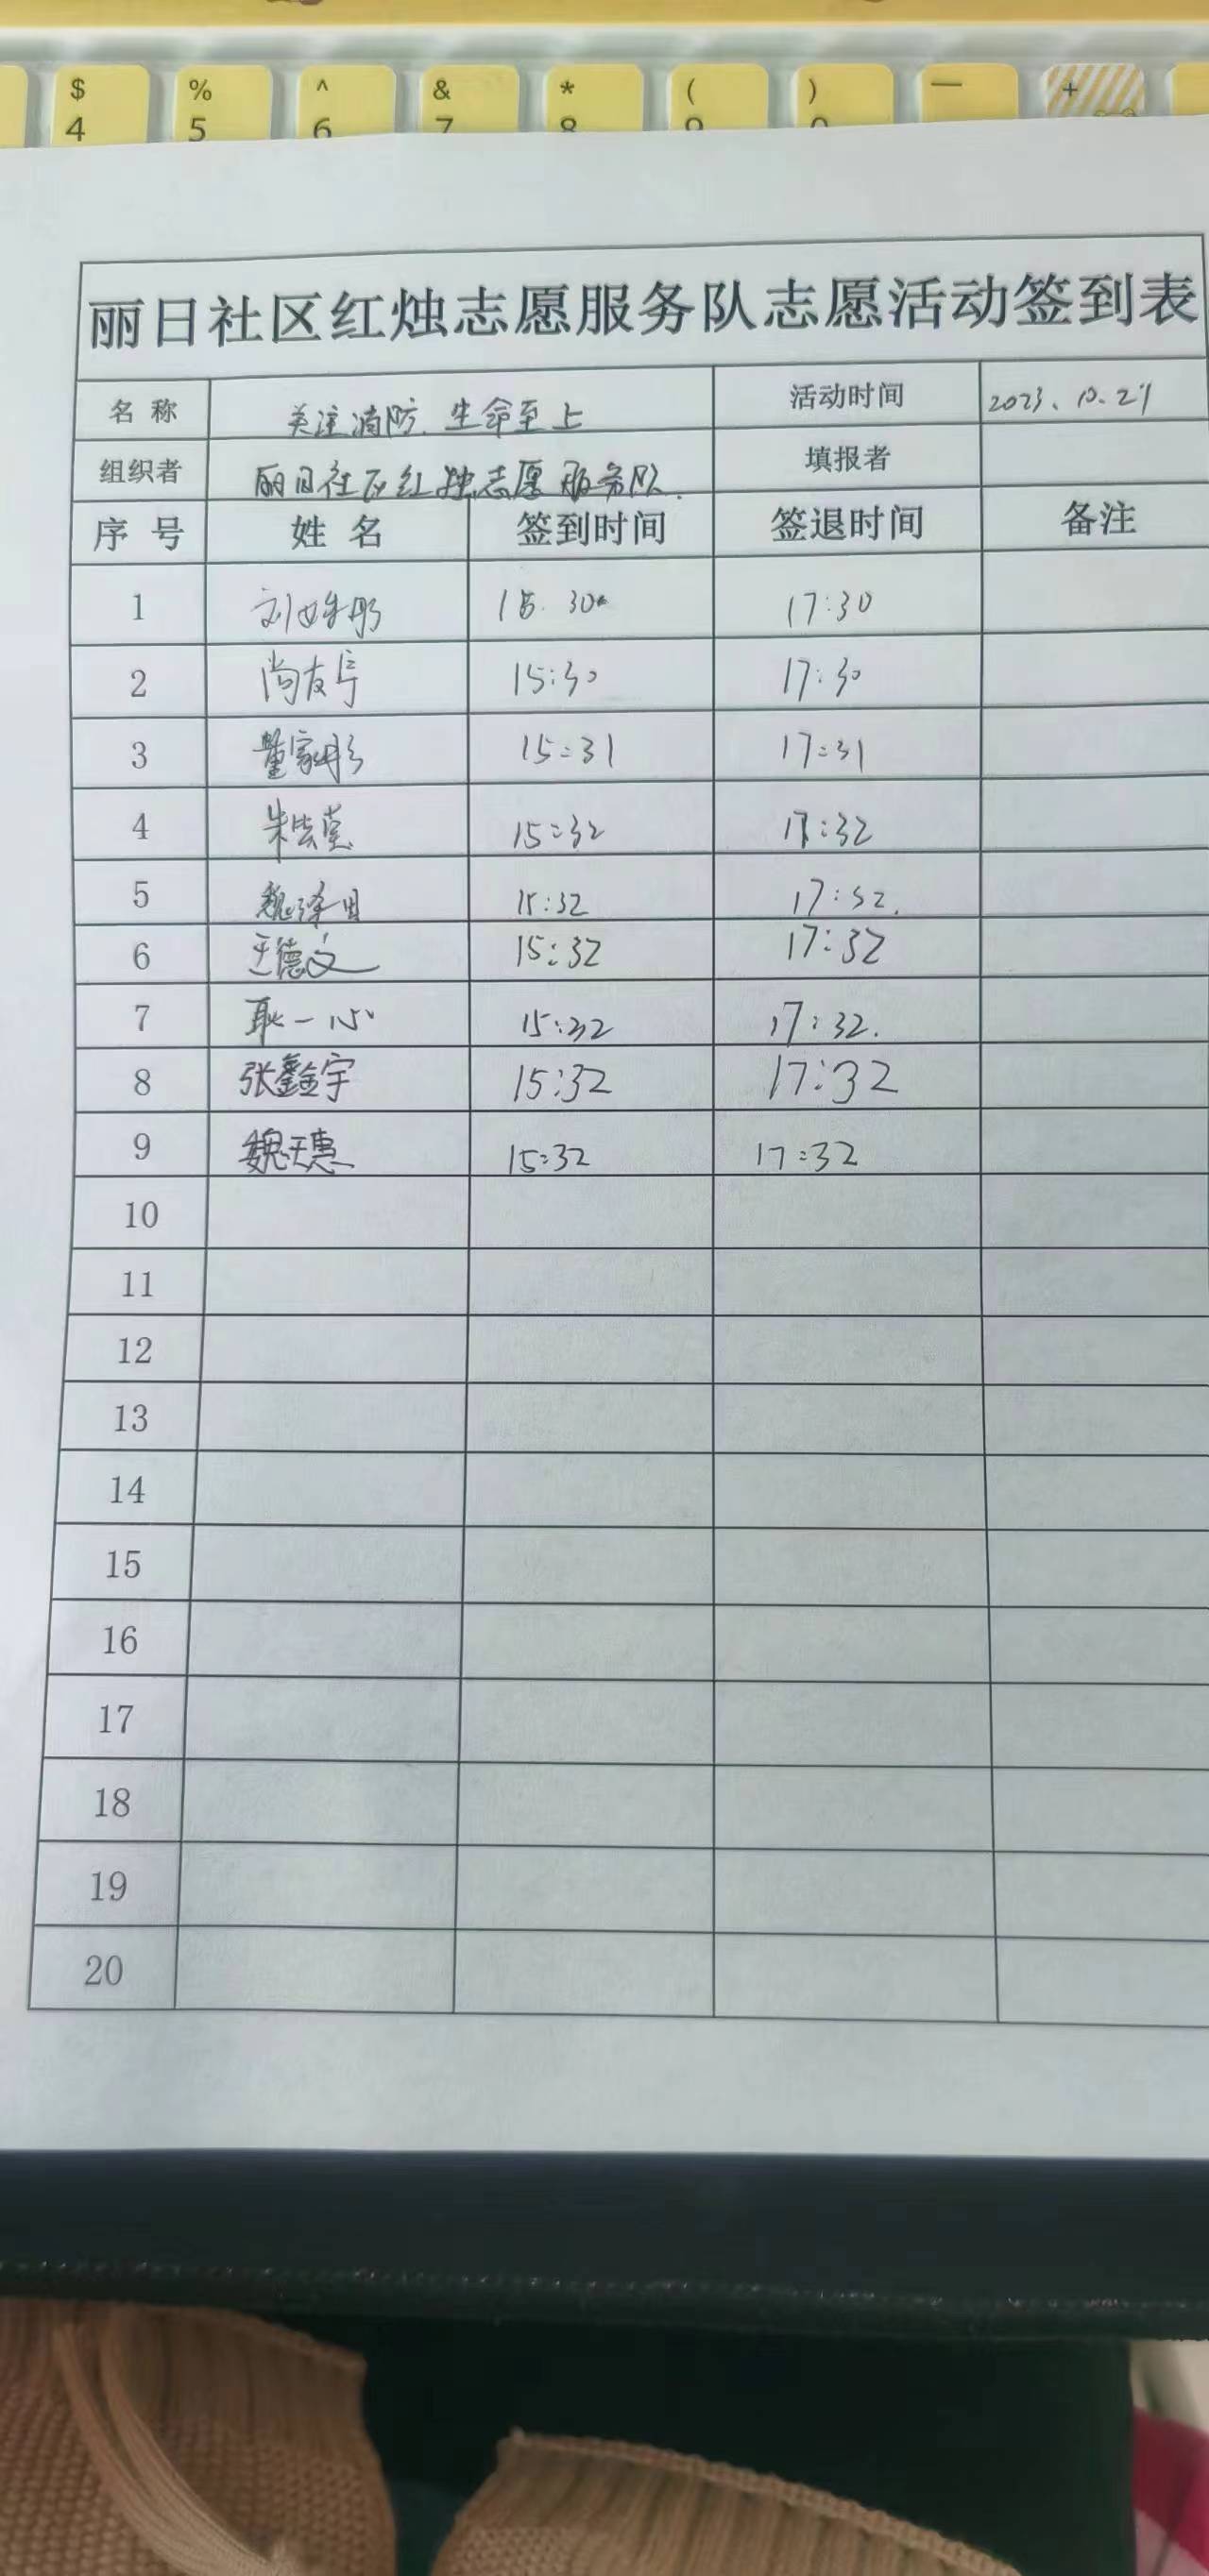 $ % ^ & * ( ) — +
4 5 6 7 8 9 0
丽日社区红烛志愿服务队志愿活动签到表
名 称 关注消防. 生命至上 活动时间 2023.10.29
组织者 丽日社区红烛志愿服务队. 填报者
序 号 姓 名 签到时间 签退时间 备注
1 15.30 17:30
2 尚友亭 15:30 17:30
3 董家彤 15:31 17:31
4 15:32 17:32
5 15:32 17:32.
6 王德文 15:32 17:32
7 耿一心 15:32 17:32.
8 张鑫宇 15:32 17:32
9 魏天惠 15:32 17:32
10
11
12
13
14
15
16
17
18
19
20